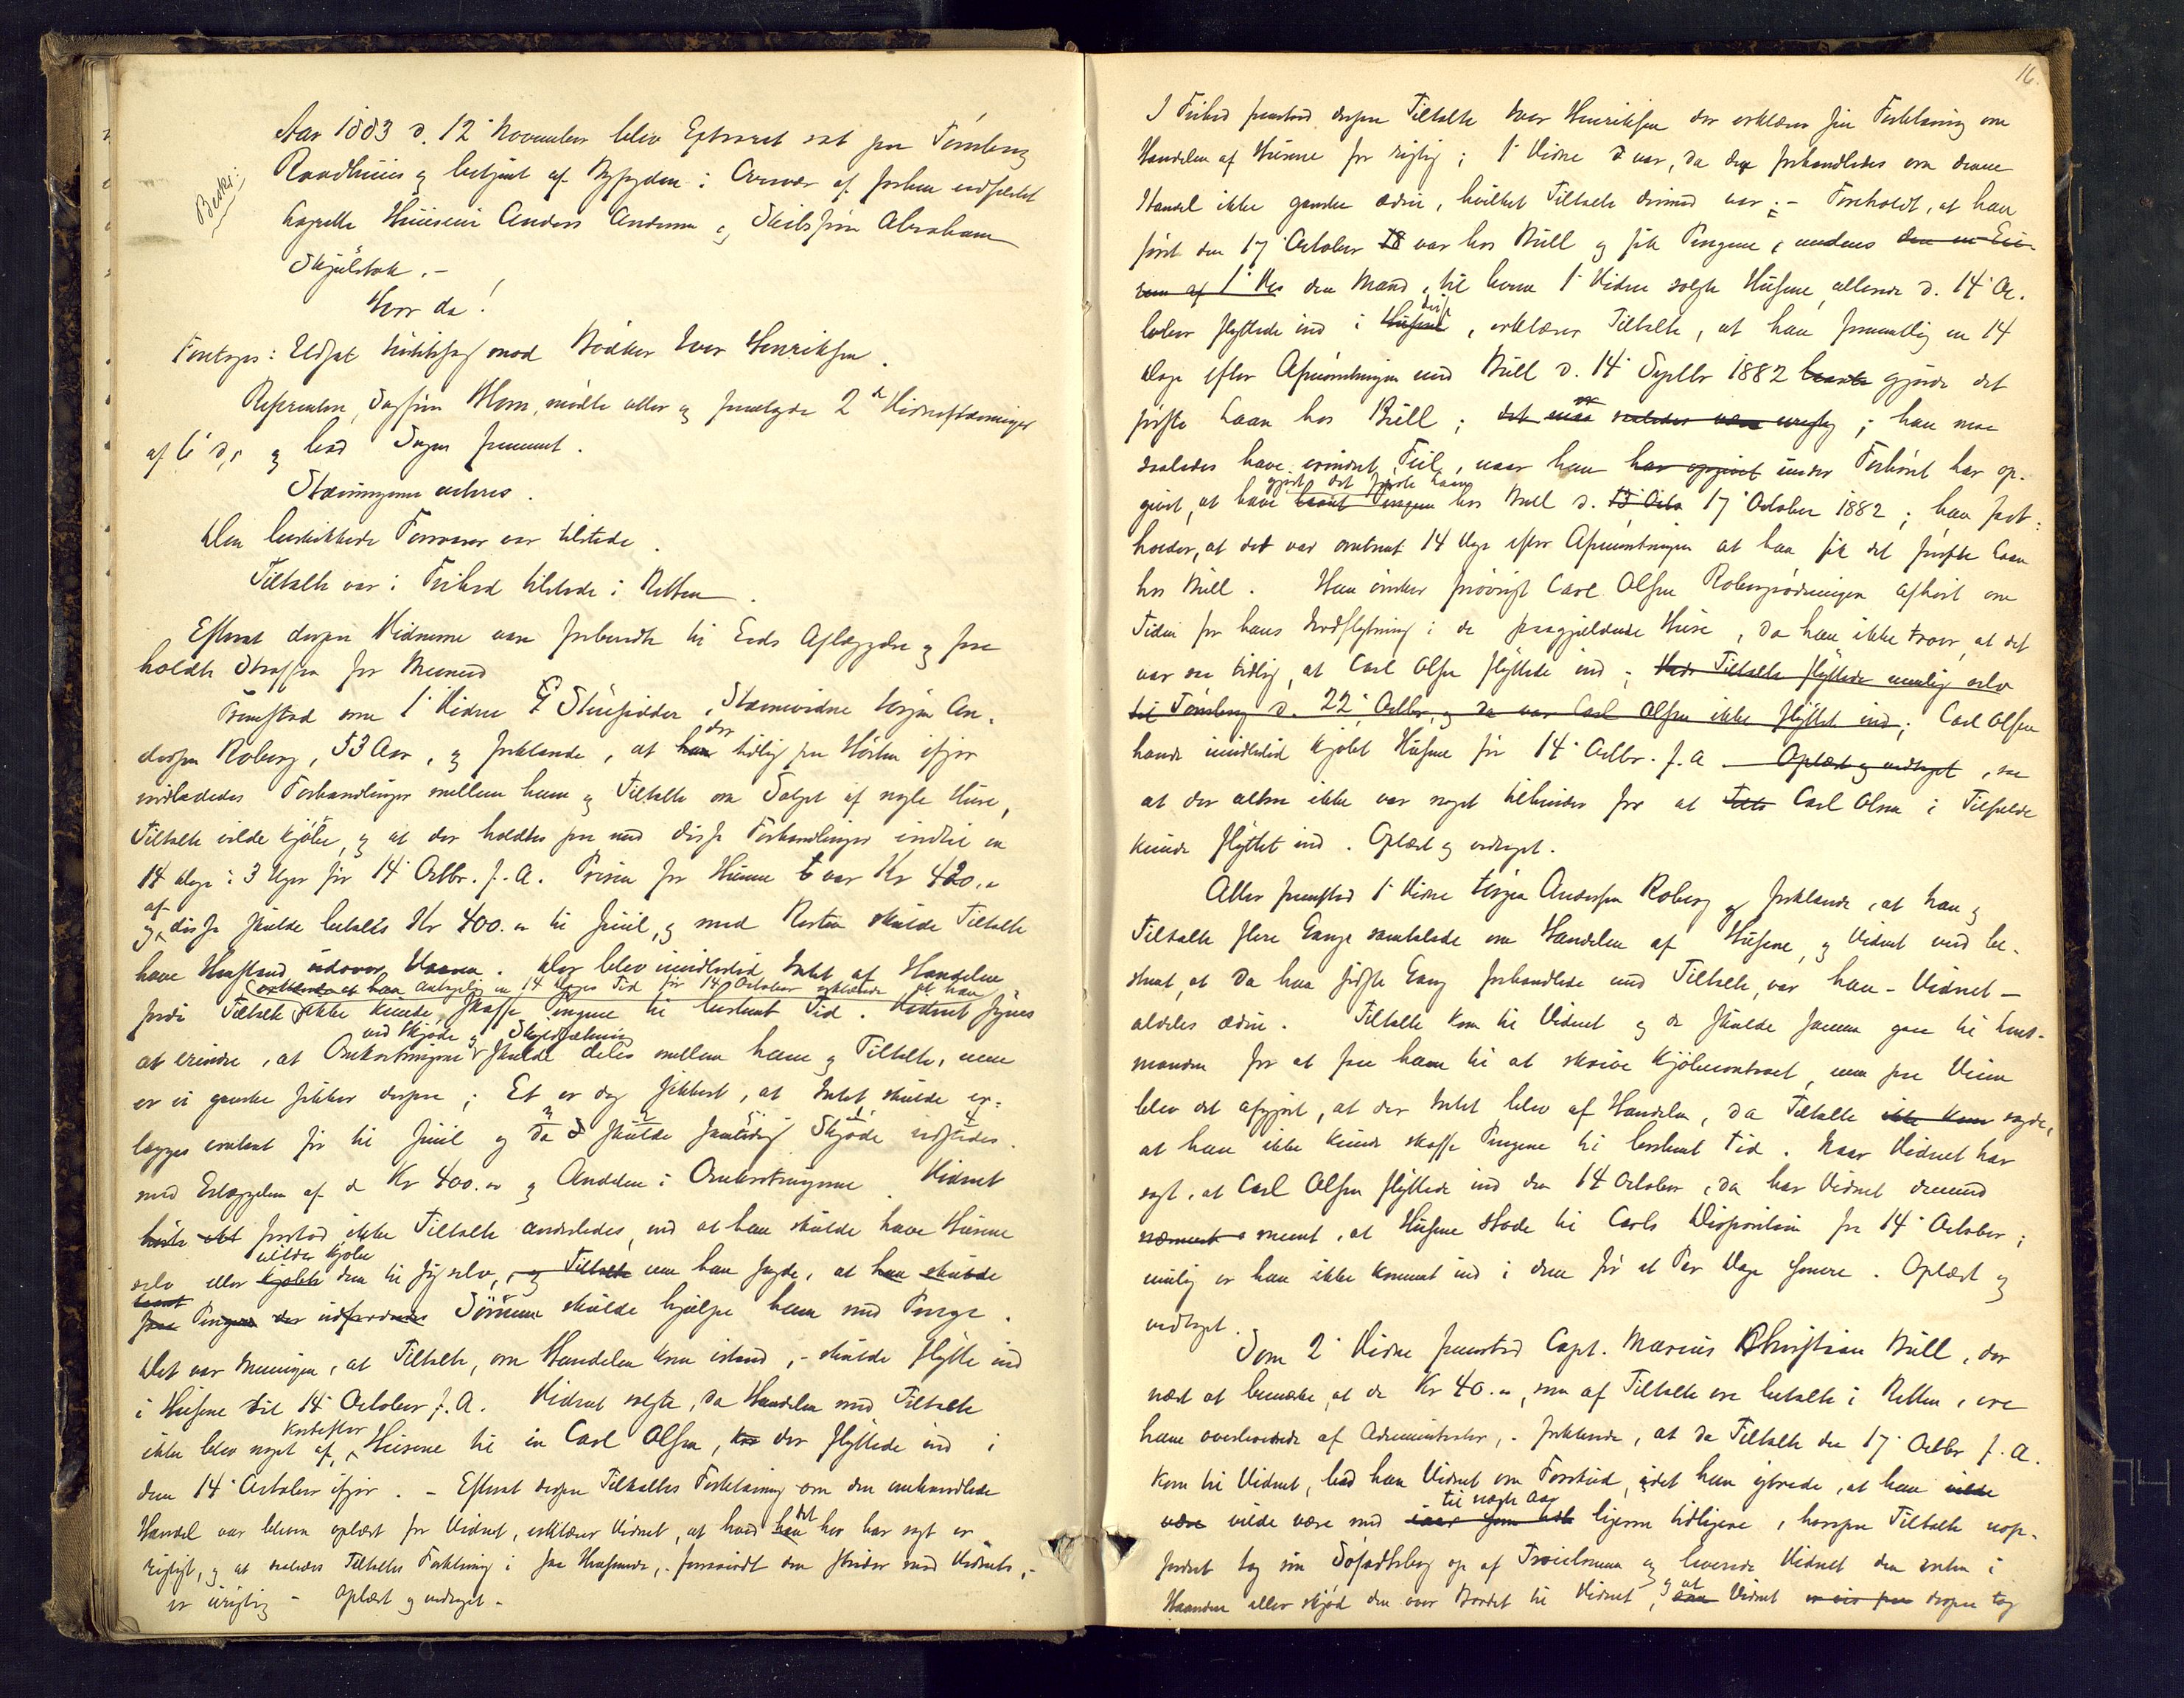 Beskr:
Aar 1883 d. 12' November blev Extraret sat paa Tønsberg
Raadhuus og betjent af Byfogden i Overvær af forhen udsædet
Laugrette Huuseier Anders Andersen og Skibsfører Abraham
Skjølstok. -
Hvor da!
Foretoges: Udsat Justitssag mod Bødker Iver Henriksen.
Referenten, Sagfører Horn, mødte atter og fremlagde 2 de Vidnestævninger
af 6' ds, og bad Sagen fremmet.
Stævningerne acteres.
Den beskikkede Forsvarer var tilstede.
Tiltalte var i Frihed tilstede i Retten.
Efterat derpaa Vidnerne vare forberedte til Eeds Aflæggelse og fore
holdte Straffen for Meened
Fremstod som 1' Vidne Stuesidder, Stævnevidne Jørgen An-
dersen Roberg, 53 Aar, og forklarede, at han der tidlig paa Høsten ifjor
indlededes Forhandlinger mellem ham og Tiltalte om Salget af nogle Huse,
Tiltalte vilde kjøbe, og at der holdtes paa med disse Forhandlinger indtil en
14 Dage à 3 Uger før 14' Octbr. f. A. Prisen for Husene var Kr 420.
og af disse skulde betales Kr 400. til Juul, og med Resten skulde Tiltalte
have Henstand udover Vaaren. Der blev imidlertid Intet af Handelen
erklærede at han antagelig en 14 Dages Tid før 14' October erklærede at han
fordi Tiltalte ikke kunde skaffe Pengene til bestemt Tid. Vidnet synes
ved Skjøde og Skyldsætning
at erindre, at Omkostningerne skulde deles mellem ham og Tiltalte, men
er ei ganske sikker derpaa; Et er dog sikkert, at Intet skulde er-
lægges contant før til Juul og da skulde samtidig Skjøde udstedes
med Erlæggelsen af de Kr 400. og Andelen i Omkostningerne. Vidnet
forstod ikke Tiltalte anderledes, end at han skulde have Husene
vilde kjøbe
selv eller kjøbte dem til sig selv, og Tiltalte men han sagde, at han skulde
faae Pengene der Sønnen skulde hjælpe ham med Penge.
Det var Meningen, at Tiltalte, om Handelen kom istand, - skulde flytte ind
i Husene til 14' October f. A. Vidnet solgte, da Handelen med Tiltalte
kortefter
ikke blev noget af, Husene til en Carl Olsen, der flyttede ind i
dem 14' October ifjor. - Efterat derpaa Tiltaltes Forklaring om den omhandlede
Handel var bleven oplæst for Vidnet, erklærer Vidnet, at hvad han det her har sagt er
rigtigt, og at saaledes Tiltaltes Forklaring i saa Henseende, - forsaavidt den strider mod Vidnets, -
er urigtig - Oplæst og vedtaget. -
16.
I Frihed fremstod derpaa Tiltalte Iver Henriksen der erklærer sin Forklaring om
Handelen af Husene for rigtig; 1' Vidne var, da der forhandledes om denne
Handel ikke ganske ædru, hvilket Tiltalte derimod var; - Foreholdt, at han
først den 17' October 18 var hos Bull og fik Pengene, medens den
den Mand, til hvem 1' Vidne solgte Husene, allerede d. 14' Oc-
disse
tober flyttede ind i Husene, erklærer Tiltalte, at han formentlig en 14
Dage efter Afmønstringen med Bull d. 14' Septbr 1882 gjorde det
første Laan hos Bull; det maa saaledes være urigtig; han maa
saaledes have erindret Feil, naar han har opgivet under Forhøret har op-
gjort det første Laan
givet, at have laant Pengene hos Bull d. 17' October 1882; han fast-
holder, at det var omtrent 14 Dage efter Afmønstringen at han fik det første Laan
hos Bull. Han ønsker forøvrigt Carl Olsen Robergrødningen afhørt om
Tiden for hans Indflytning i de paagjældende Huse, da han ikke troer, at det
var saa tidlig, at Carl Olsen flyttede ind; Tiltalte flyttede nemlig selv
til Tønsberg d. 22' Octbr, og da var Carl Olsen ikke flyttet ind; Carl Olsen
havde imidlertid kjøbt Husene før 14' Octbr. f. A. Oplæst og vedtaget, saa
at der altsaa ikke var noget tilhinder for at Carl Olsen i Tilfælde
kunde flyttet ind. Oplæst og vedtaget.
Atter fremstod 1' Vidne Jørgen Andersen Roberg og forklarede, at han og
Tiltalte flere Gange samtalede om Handelen af Husene, og Vidnet veed be-
stemt, at da han sidste Gang forhandlede med Tiltalte, var han - Vidnet -
aldeles ædru. Tiltalte kom til Vidnet og de skulde sammen gaae til Lens-
manden for at faae ham til at skrive Kjøbecontract, men paa Veien
blev det afgjort, at der Intet blev af Handelen, da Tiltalte ikke kom sagde,
at han ikke kunde skaffe Pengene til bestemt Tid. Naar Vidnet har
sagt, at Carl Olsen flyttede ind den 14 October, da har Vidnet dermed
meent, at Husene stode til Carls Disposition fra 14' October;
muelig er han ikke kommet ind i dem før et Par Dage senere. Oplæst og
vedtaget.
Som 2' Vidne fremstod Capt. Marius Christian Bull, der
næst at bemærke, at de Kr 40., som af Tiltalte ere betalte i Retten, ere
ham overleverede af Administrator, - forklarede, at da Tiltalte den 17' Octbr f. A.
kom til Vidnet, bad han Vidnet om Forskud, idet han ytrede, at han vilde
til næste Aar
være vilde være med ligesom tidligere, hvorpaa Tiltalte uop-
fordret tog sin Søfartsbog op af Trøielommen og leverede Vidnet den enten i
Haanden eller skjød den over Bordet til Vidnet, og at Vidnet derpaa tog